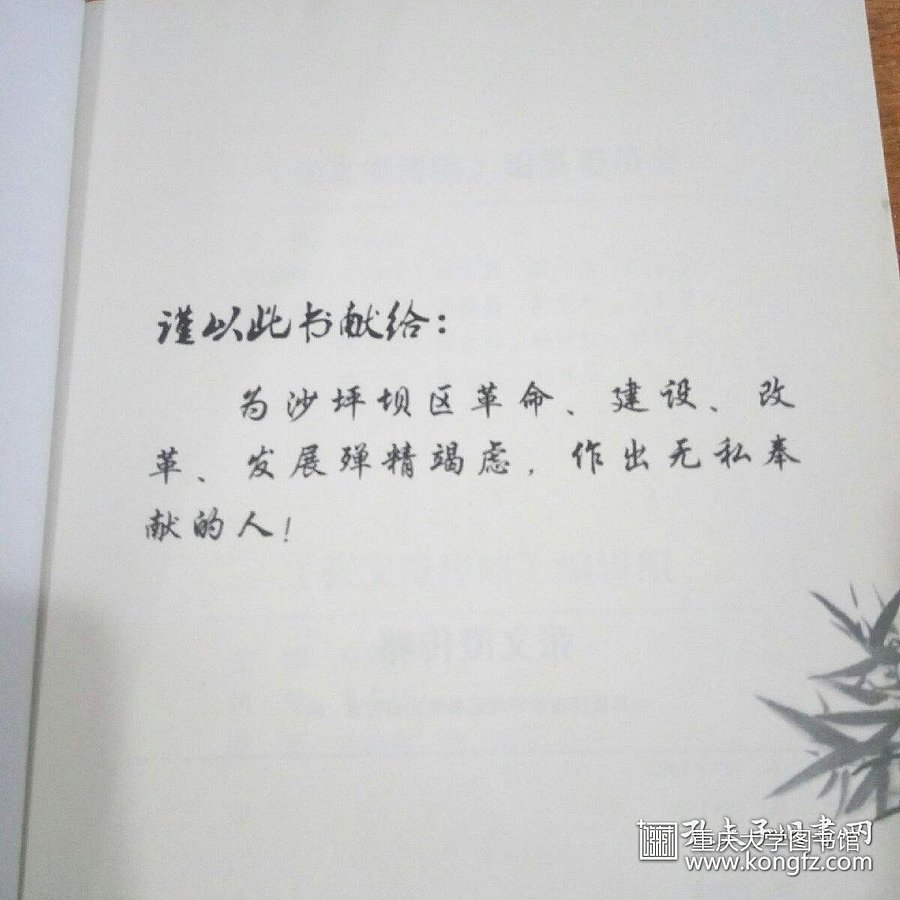 谨以此书献给：
为沙坪坝区革命、建设、改
革、发展殚精竭虑，作出无私奉
献的人！
孔夫子旧书网
重庆大学图书馆
www.kongfz.com